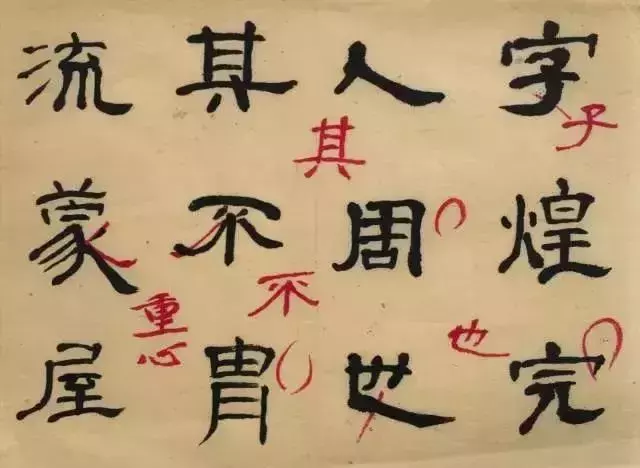 字煌完
子
人周也
也
其不胄
其不
流蒙屋
重心